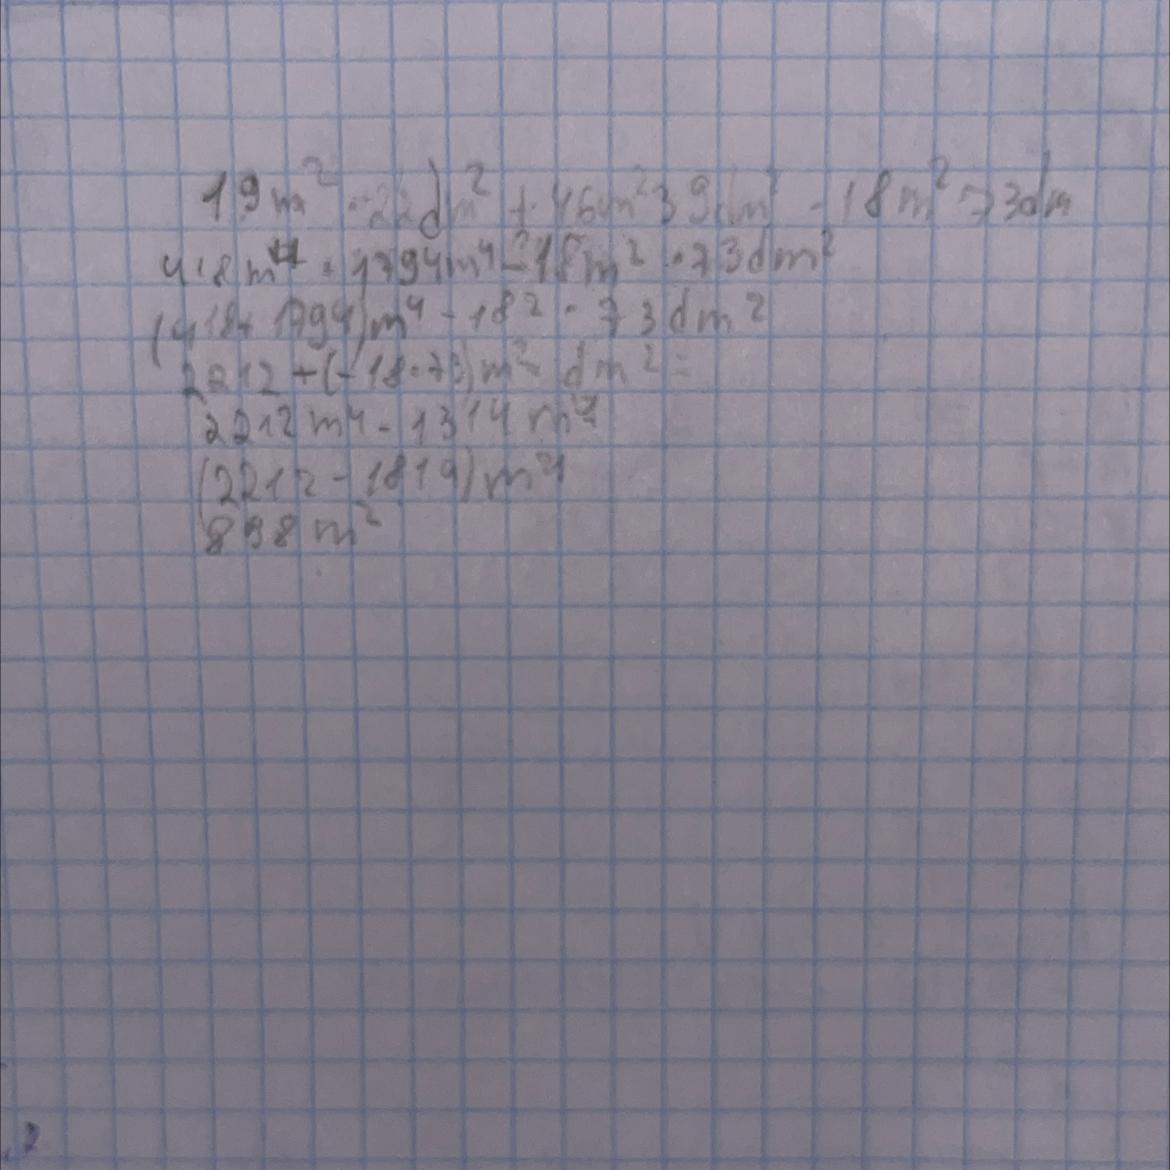 19m² · 22dm² + 46m² 39dm² - 18m² 73dm
418m⁴ + 1794m⁴ - 18m² · 73dm²
(418+1794)m⁴ - 18² · 73dm²
2212 + (-18·73)m² dm² =
2212m⁴ - 1314m⁴
(2212 - 1819)m⁴
898m²